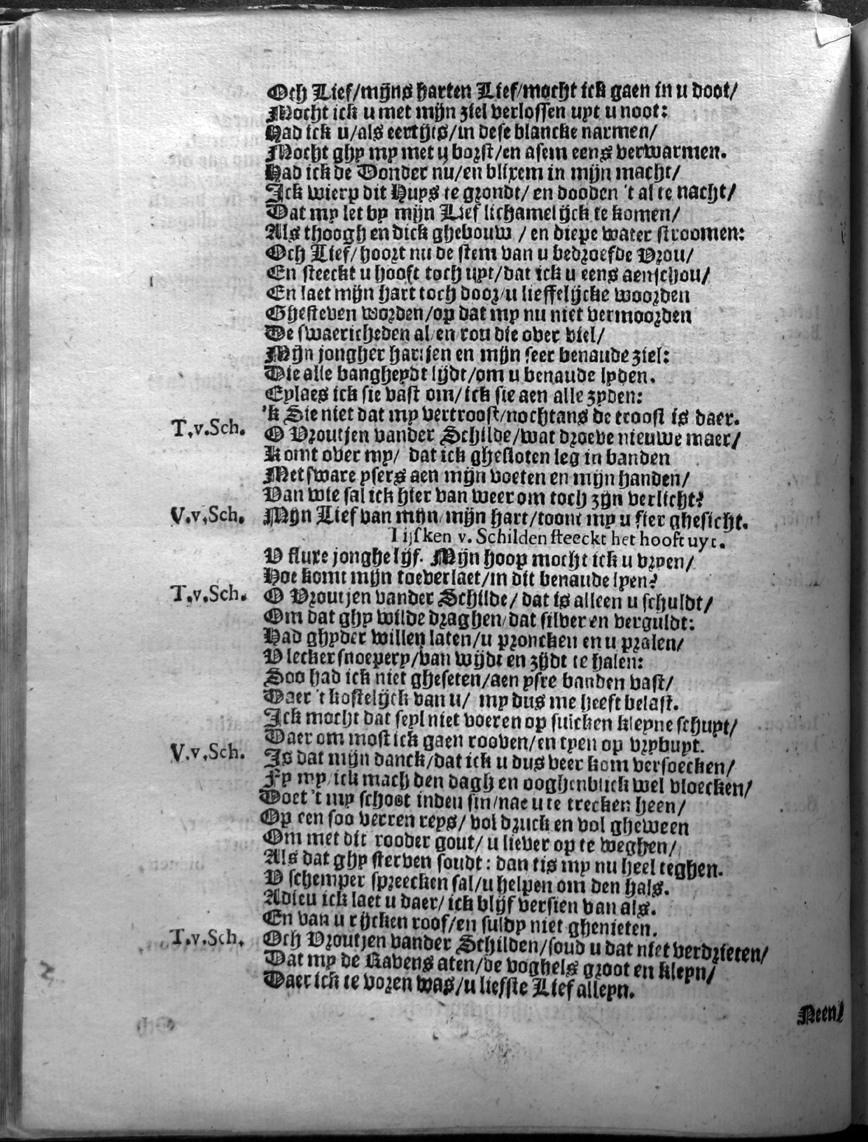 Och Lief/mijns harten Lief/mocht ick gaen in u doot/
Mocht ick u met mijn ziel verlossen uyt u noot:
Had ick u/als eertijts/in dese blancke narmen/
Mocht ghy my met u borst/en asem eens verwarmen.
Had ick de Donder nu/en blixem in mijn macht/
Ick wierp dit Huys te grondt/ en dooden 't al te nacht/
Dat my let by mijn Lief lichamelijck te komen/
Als thoogh en dick ghebouw / en diepe water stroomen:
Och Lief/hoort nu de stem van u bedroefde Vrou/
En steeckt u hooft toch uyt/dat ick u eens aenschou/
En laet mijn hart toch door/u lieffelijcke woorden
Ghesteven worden/op dat my nu niet vermoorden
De swaericheden al/en rou die over viel/
Mijn jongher hartjen en mijn seer benaude ziel:
Die alle bangheydt lijdt/om u benaude lyden.
Eylaes ick sie vast om/ick sie aen alle zyden:
'k Sie niet dat my vertroost/nochtans de troost is daer.
T.v.Sch. O Vroutjen vander Schilde/wat droeve nieuwe maer/
Komt over my/ dat ick ghesloten leg in banden
Met sware ysers aen mijn voeten en mijn handen/
Van wie sal ick hier van weer om toch zijn verlicht?
V.v.Sch. Mijn Lief van mijn/mijn hart/toont my u fier ghesicht.
Tijsken v. Schilden steeckt het hooft uyt.
V fluxe jonghe lijf. Mijn hoop mocht ick u vryen/
Hoe komt mijn toeverlaet/in dit benaude lyen?
T.v.Sch. O Vroutjen vander Schilde/ dat is alleen u schuldt/
Om dat ghy wilde draghen/dat silver en verguldt:
Had ghyder willen laten/u proncken en u pralen/
V lecker snoepery/van wijdt en zijdt te halen:
Soo had ick niet gheseten/aen ysre banden vast/
Daer 't kostelijck van u/ my dus me heeft belast.
Ick mocht dat seyl niet voeren op sulcken kleyne schuyt/
Daer om most ick gaen rooven/en tyen op vrybuyt.
V.v.Sch. Is dat mijn danck/dat ick u dus veer kom versoecken/
Fy my/ick mach den dagh en ooghenblick wel vloecken/
Doet 't my schoot inden sin/nae u te trecken heen/
Op een soo verren reys/ vol druck en vol gheween
Om met dit rooder gout/ u liever op te weghen/
Als dat ghy sterven soudt: dan tis my nu heel teghen.
V schemper spreecken sal/u helpen om den hals.
Adieu ick laet u daer/ ick blijf versien van als.
En van u rijcken roof/en suldy niet ghenieten.
T.v.Sch. Och Vroutjen vander Schilden/soud u dat niet verdrieten/
Dat my de Ravens aten/de voghels groot en kleyn/
Daer ick te voren was/u liefste Lief alleyn.
Neen/